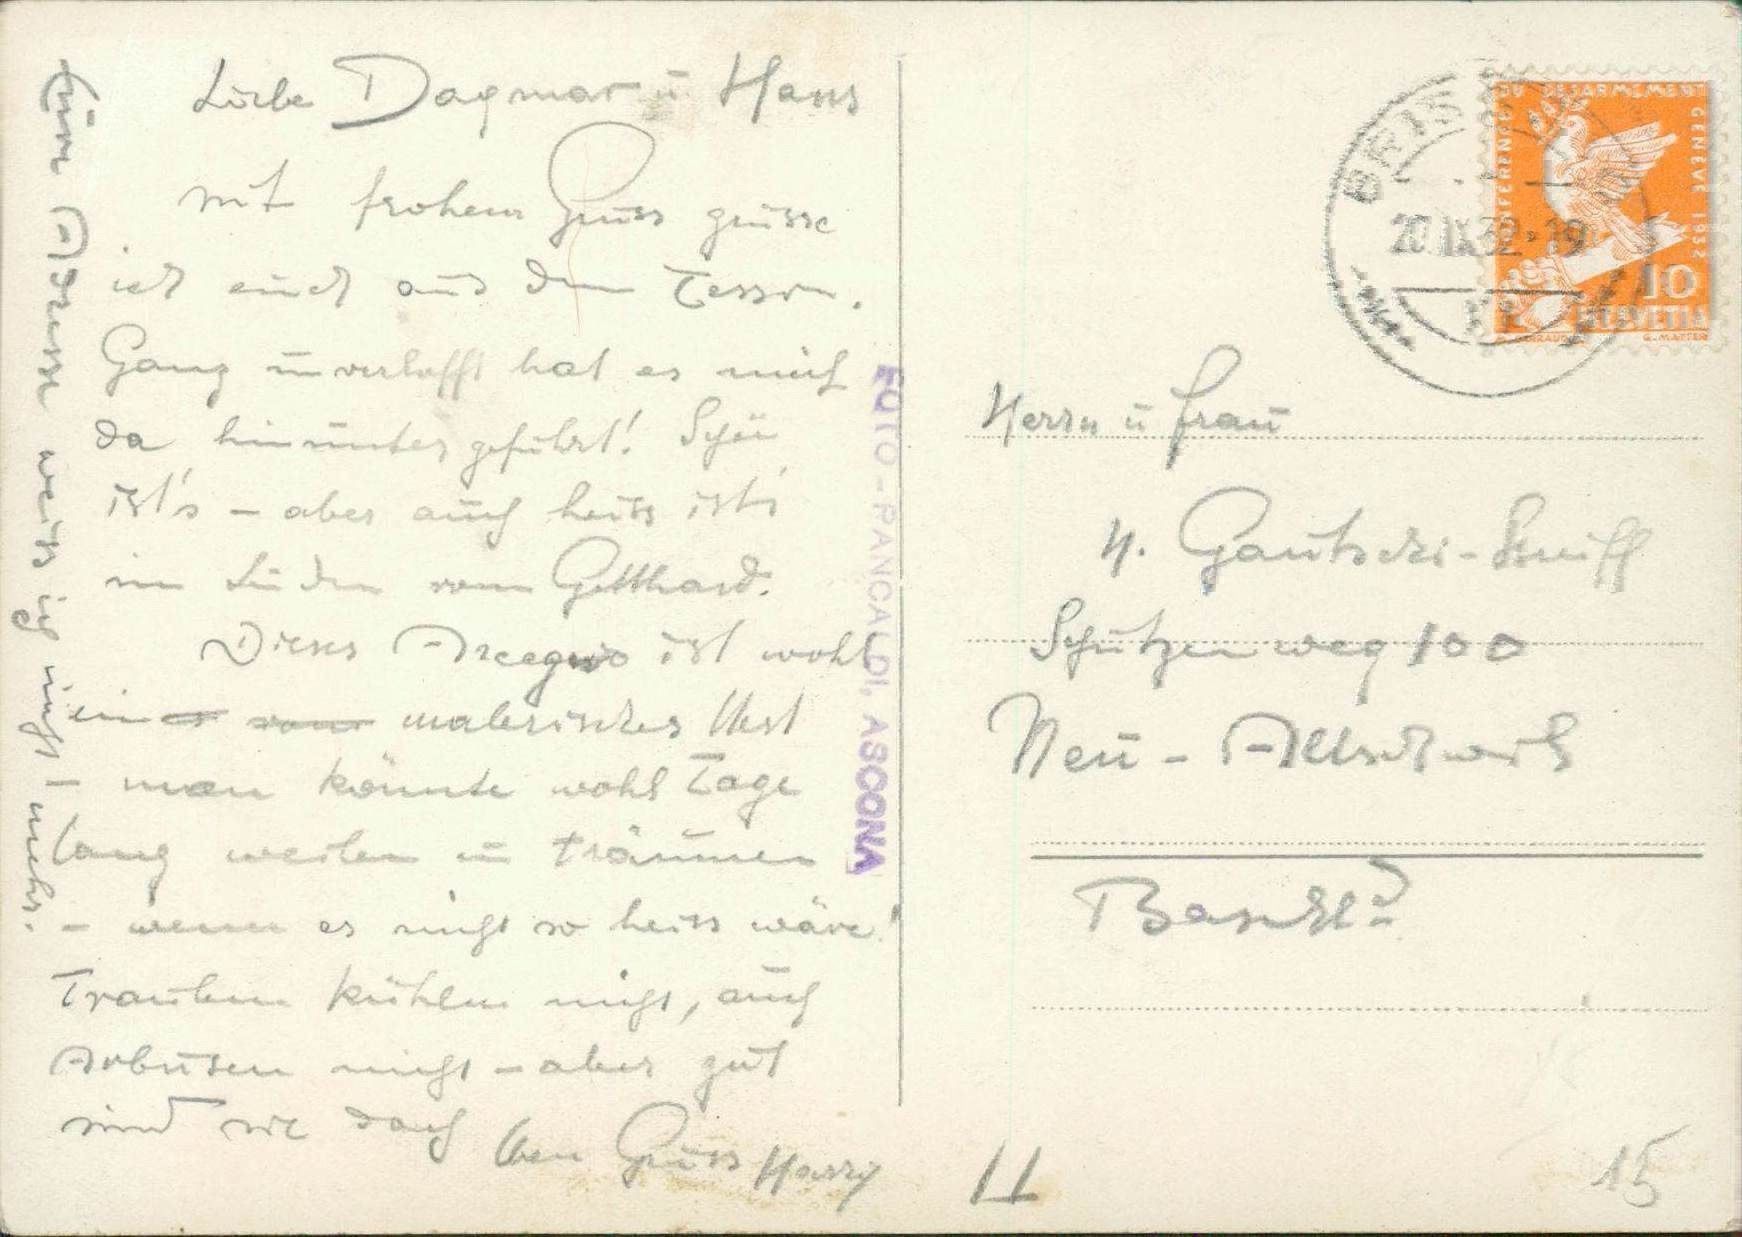 Liebe Dagmar u Hans
mit frohem Gruss grüsse
ich euch aus dem Tessin.
Ganz unverhofft hat es mich
da hinunter geführt! Schön
ist's – aber auch heiss ist's
im Süden vom Gotthard.
Dieses Arcegno ist wohl
ein malerisches Nest
– man könnte wohl Tage
lang weilen u träumen
– wenn es nicht so heiss wäre!
Trauben kühlen nicht, auch
Arbusen nicht – aber gut
sind sie doch
Gruss Harry
Adresse weiss ich nicht mehr.
FOTO-PANCALDI, ASCONA
CONFERENCE DU DESARMEMENT GENEVE 1932
10
HELVETIA
BRIS
20.IX.32-19
Herrn u Frau
H. Gautschi-Streiff
Schützenweg 100
Neu-Allschwil
Basel?
11
15